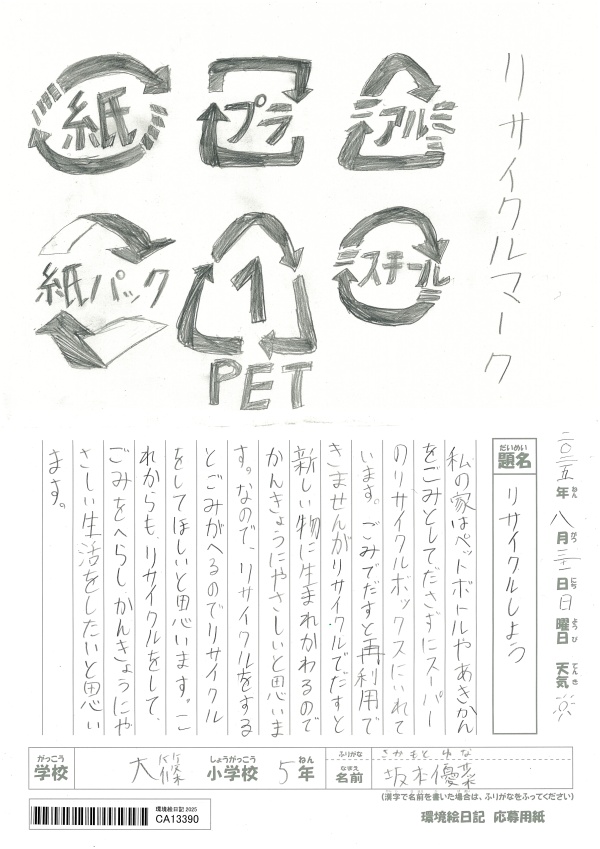 リサイクルマーク
紙
プラ
アルミ
紙パック
1
PET
スチール
二〇二五年八月三十一日日曜日天気
ねん がつ にち ようび てんき
だいめい
題名 リサイクルしよう
私の家はペットボトルやあきかん
をごみとしてださずにスーパー
のリサイクルボックスにいれて
います。ごみでだすと再利用で
きませんがリサイクルでだすと
新しい物に生まれかわるので
かんきょうにやさしいと思いま
す。なので、リサイクルをする
とごみがへるのでリサイクル
をしてほしいと思います。こ
れからも、リサイクルをして、
ごみをへらしかんきょうにや
さしい生活をしたいと思い
ます。
がっこう しょうがっこう ねん
学校 大篠 小学校 5年
ふりがな さかもと ゆな
なまえ
名前 坂本優菜
(漢字で名前を書いた場合は、ふりがなをふってください)
環境絵日記 2025
CA13390
環境絵日記 応募用紙